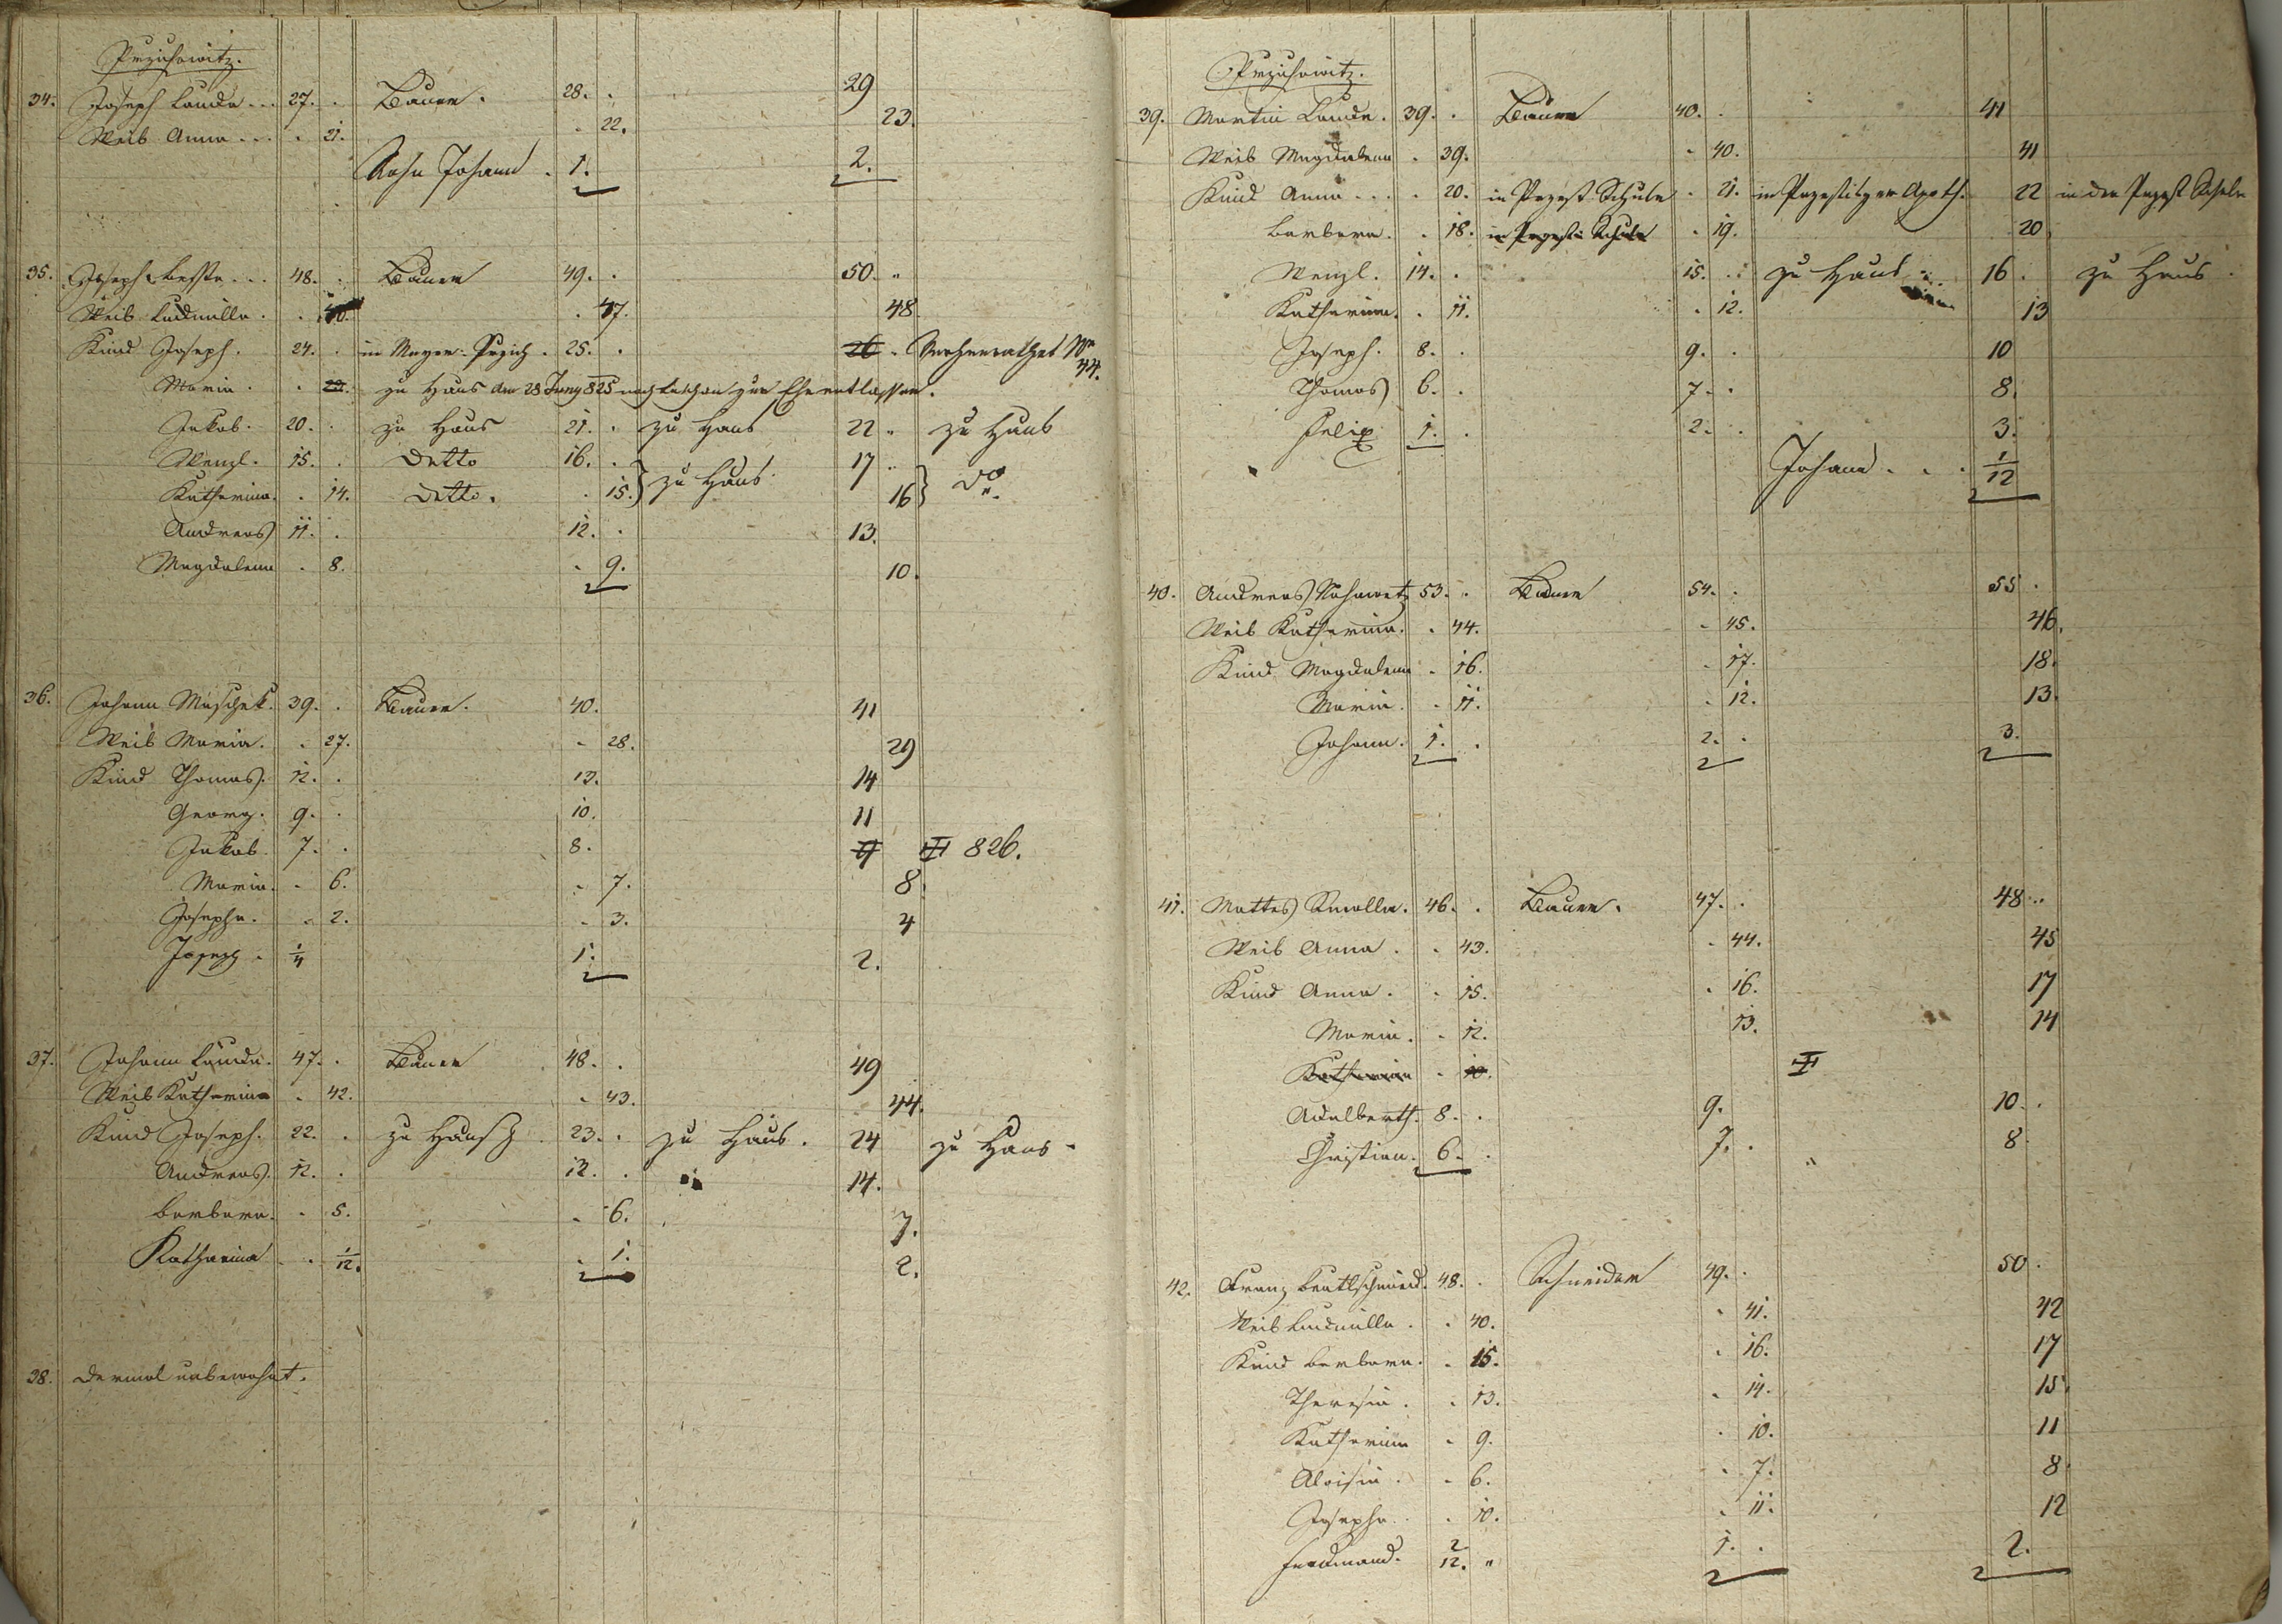 Przichowitz.
34. Joseph Lauda . . . 27. . Bauer. 28. . 29
Weib Anna . . . . 21. . 22. 23.
Sohn Johann . 1. 2.
35. Joseph . . . 48. . Bauer 49. . 50. "
Weib Ludmilla . . . 47. 48
Kind Joseph. 24. . im Mayer. Przich. 25. . 26 . Verheurathet Nro 44.
Maria . . 22. zu Haus den 28 Juny 825 nach zur Ehe entlassen.
Jakob. 20. . zu Haus 21. . zu Haus 22 " zu Haus
Wenzl. 15. . Detto 16. . } zu Haus 17 " } do
Katharina . . 14. Detto. . 15. 16
Andreas 11. . 12. . 13.
Magdalena . 8. . 9. 10.
36. Johann Muschek. 39. . Bauer. 40. 41
Weib Maria. . 27. . 28. 29
Kind Thomas. 12. . 13. 14
Georg. 9. . 10. 11
Jakob. 7. . 8. 9 826.
Maria. . 6. . 7. 8.
Josepha. . 2. . 3. 4
Joseph . 1/4 1. 2.
37. Johann Lauda. 47. . Bauer 48. . 49
Weib Katharina . 42. . 43. 44.
Kind Joseph. 22. . zu Hauß 23. . zu Haus. 24 zu Haus .
Andreas. 12. . 13. . 14.
Barbara. . 5. . 6. 7.
Katharina . . 1/12. . 1. 2.
38. dermal unbewohnt.
Przichowitz.
39. Martin Lauda. 39. . Bauer 40. . 41
Weib Magdalena . 39. . 40. 41
Kind Anna . . . . 20. in Przest. Schule . 21. in Przestitzer Apoth. 22 in der Przest Schule
Barbara. . 18. in Przest. Schule . 19. 20
Wenzl. 14. . 15. . zu Haus 16 . zu Haus .
Katharina. . 11. . 12. 13
Joseph. 8. . 9. . 10
Thomas 6. . 7. . 8.
Felix 1. . 2. . 3.
Johann . . . 1/12
40. Andreas 53. . Bauer 54. . 55 .
Weib Katharina. . 44. . 45. 46.
Kind Magdalena . 16. . 17. 18.
Maria. . 11. . 12. 13.
Johann. 1. . 2. . 3.
41. Mattes Smolla. 46. . Bauer. 47. . 48 . .
Weib Anna . . 43. . 44. 45
Kind Anna . . 15. . 16. 17
Maria. . 12. 13. 14
Katharina . 10.
Adalberth. 8. . 9. 10. .
Christian. 6. . 7. . 8
42. Franz 48. . Schneider 49. . 50 .
Weib Ludmilla . . 40. . 41. 42
Kind Barbara. . 15. . 16. 17
Theresia . . 13. . 14. 15.
Katharina . 9. . 10. 11
Aloisia . . 6. . 7. 8
Josepha . . 10. . 11. 12
Ferdinand. 2/12. " 1. . 2.